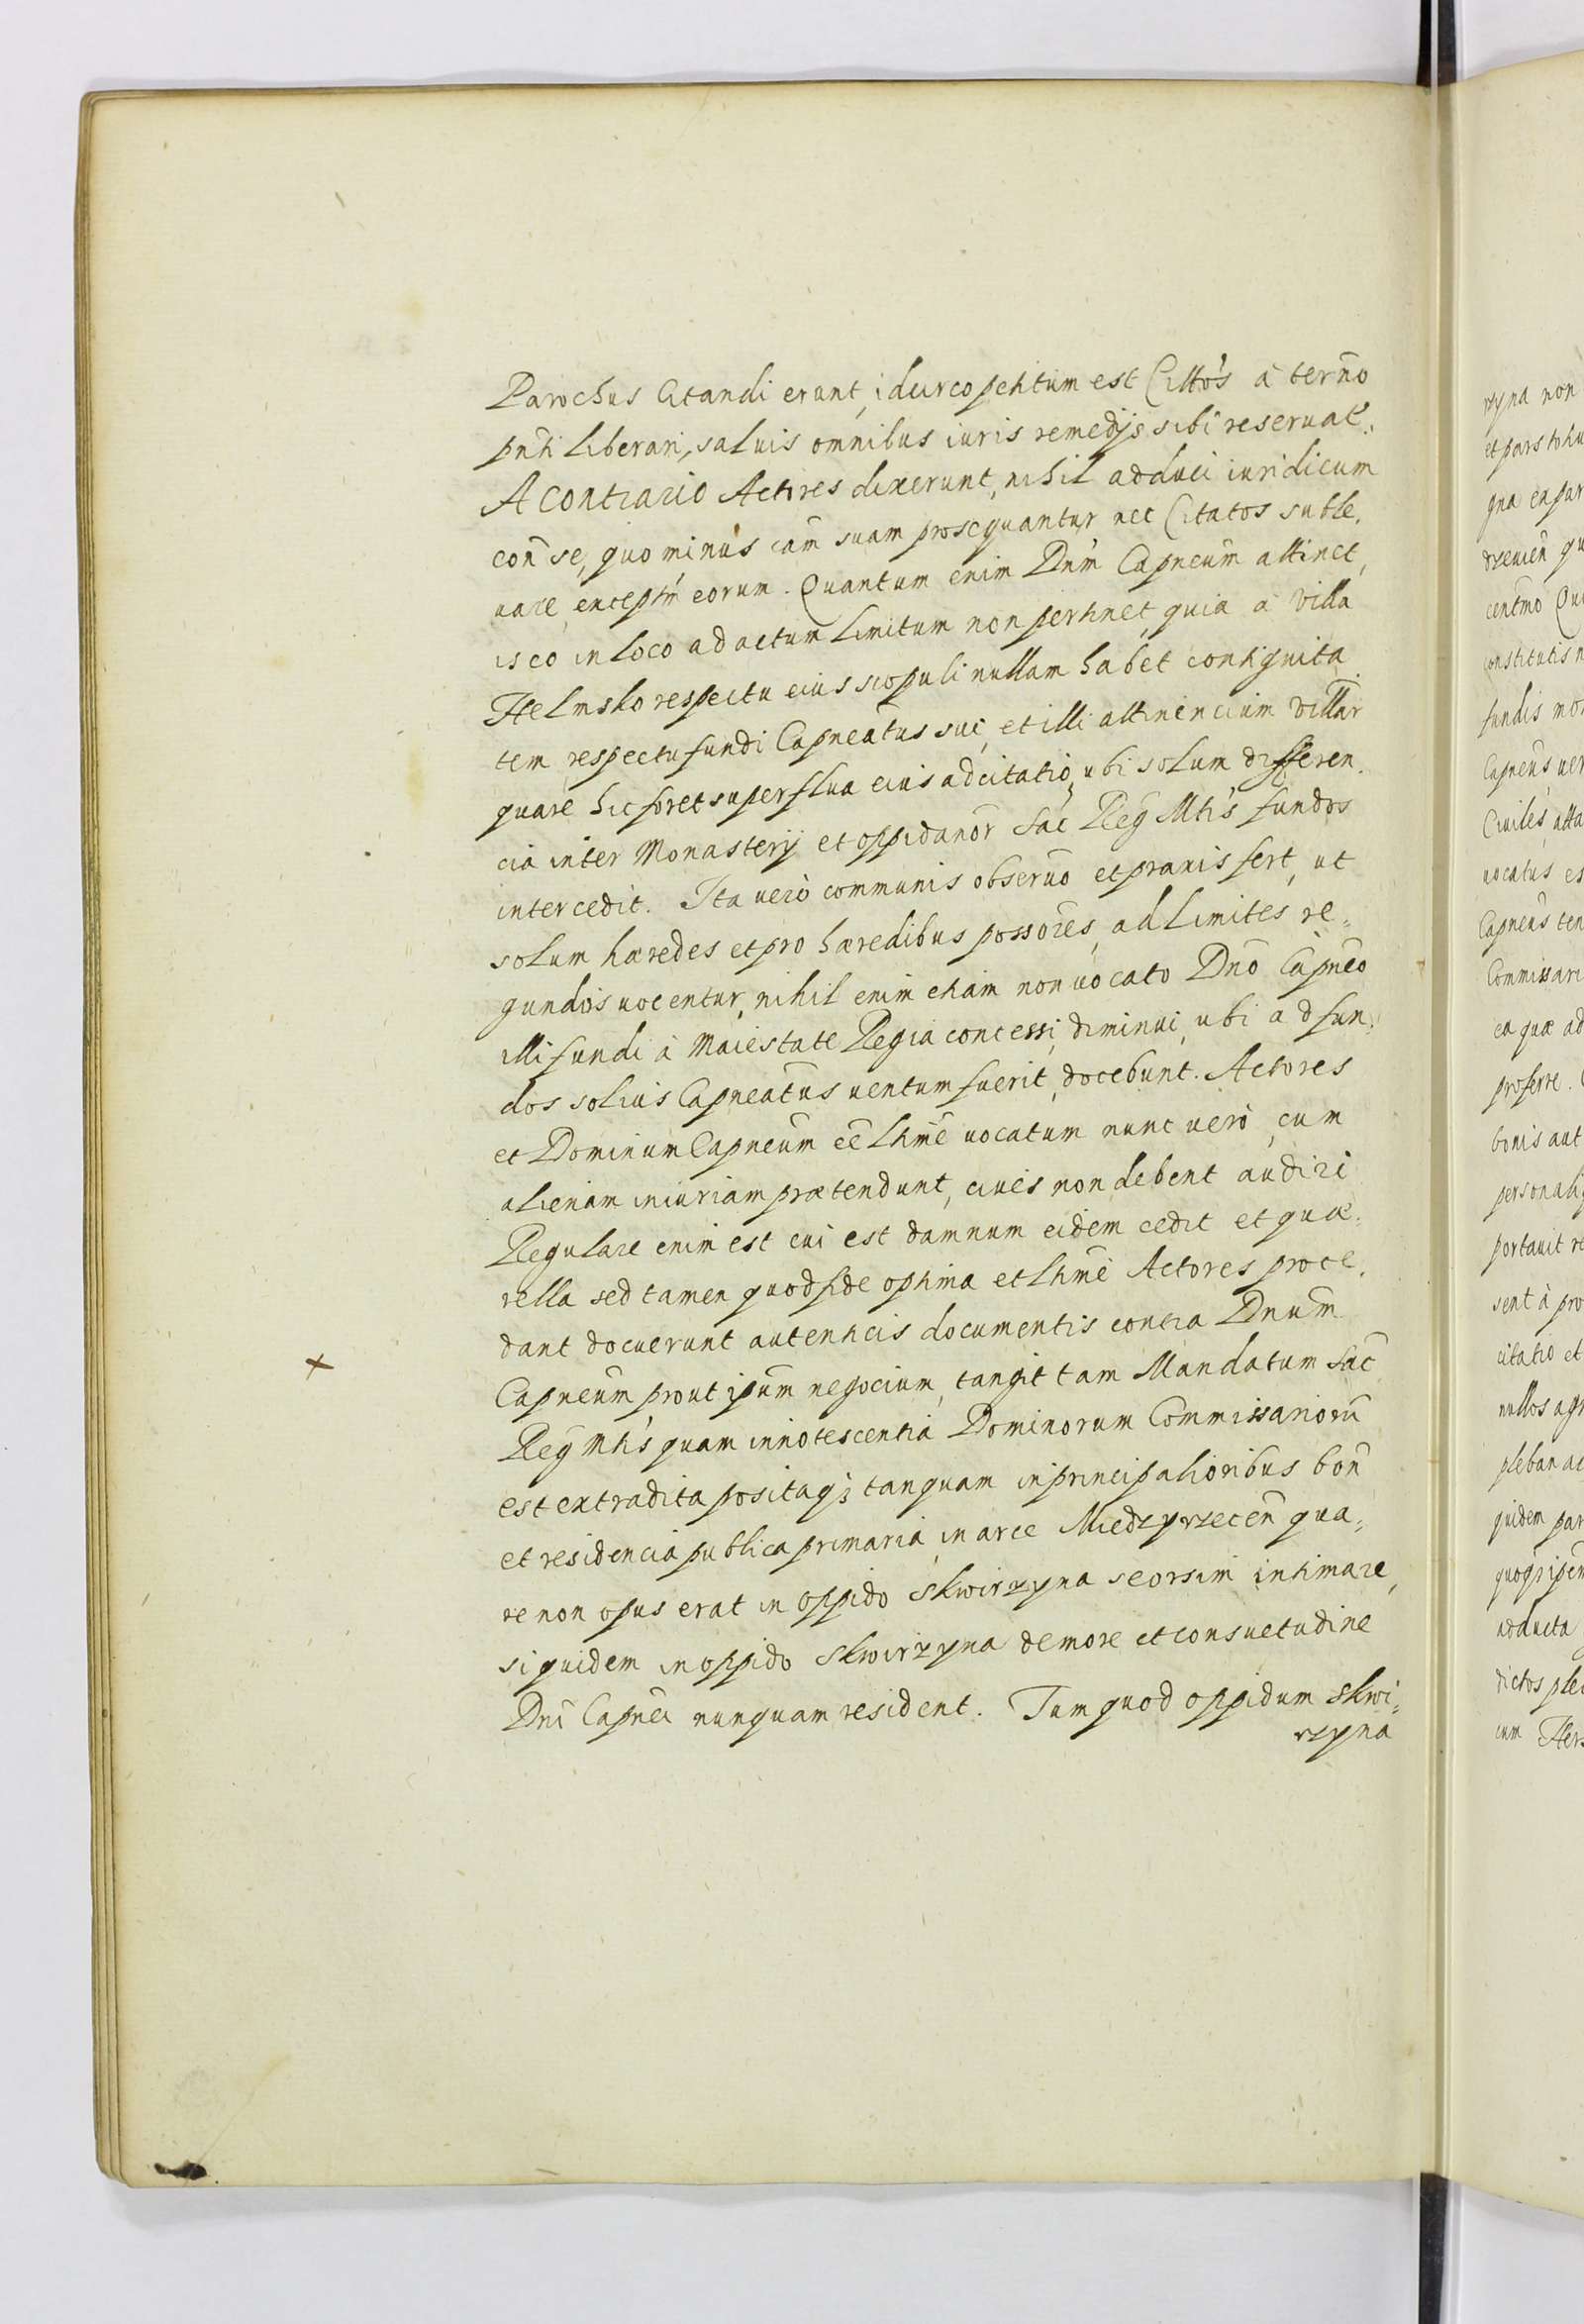 Parochus Citandi erunt, idcirco petitum est Cittos à termo
pnti liberari, saluis omnibus iuris remedijs sibi reseruat:
A contrario Actores dixerunt, nihil adduci iuridicum
con se, quo minus cam suam prosequantur nec Citatos suble,
uare, exceptm eorum. Quantum enim Dnm Capneum attinet,
is eo in loco ad actum limitum non pertinet, quia à villa
Helmsko respectu eius scopuli nullam habet contignita
tem respectu fundi Capneatus sui, et illi attinencium villar
quare hic foret superflua eius adcitatio, ubi solum differen.
cia inter Monasterij et oppidanor Sac Reg Mtis fundos
intercedit. Ita uerò communis obseruo et praxis fert, ut
solum hæredes et pro hæredibus possores, ad limites re=
gundos uocentur, nihil enim etiam non uocato Dno Capneo
illi fundi à Maiestate Regia concessi, diminui, ubi ad fun,
dos solius Capneatus uentum fuerit, docebunt. Actores
et Dominum Capneum ee lhme uocatum nunc uerò, cum
alienam iniuriam prætendunt, ciues non debent audiri
Regulare enim est cui est damnum eidem cedit et quæ=
rella sed tamen quod fide optima et lhme Actores proce.
dant docuerunt autenticis documentis contra Dnum
Capneum prout ipsum negocium, tangit tam Mandatum Sac
Reg Mtis quam innotescentia Dominorum Commissariorum
est extradita positaq3 tanquam in principalioribus bon
et residencia publica primaria in arce Miedzyrzecen qua=
re non opus erat in oppido Skwirzyna seorsim intimare,
siquidem in oppido Skwirzyna de more et consuetudine
Dni Capnei nunquam resident. Tum quod oppidum Skwi=
rzyna